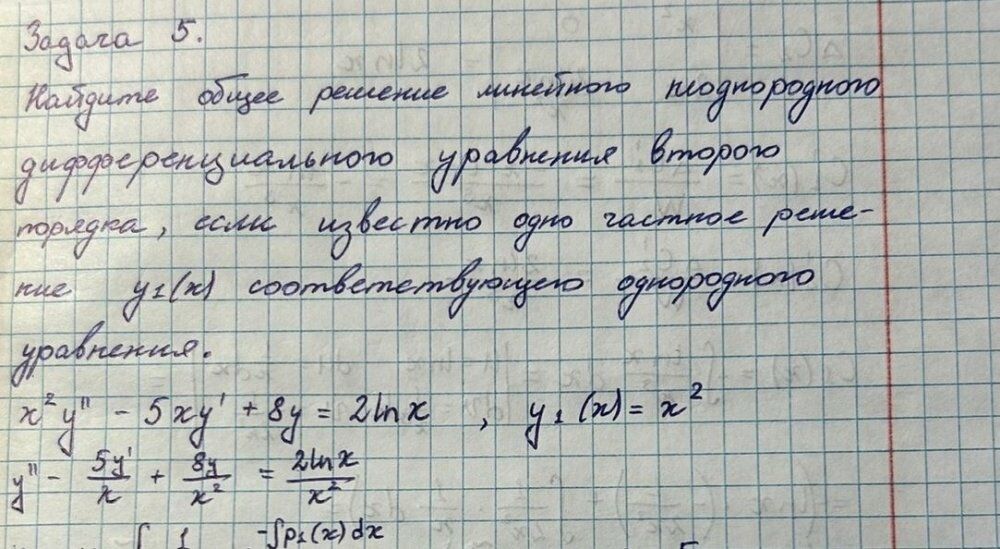 Задача 5.
Найдите общее решение линейного неоднородного
дифференциального уравнения второго
порядка, если известно одно частное реше-
ние y₁(x) соответствующего однородного
уравнения.
x²y'' - 5xy' + 8y = 2lnx , y₁(x) = x²
y'' - 5y'/x + 8y/x² = 2lnx/x²
-∫p₁(x)dx